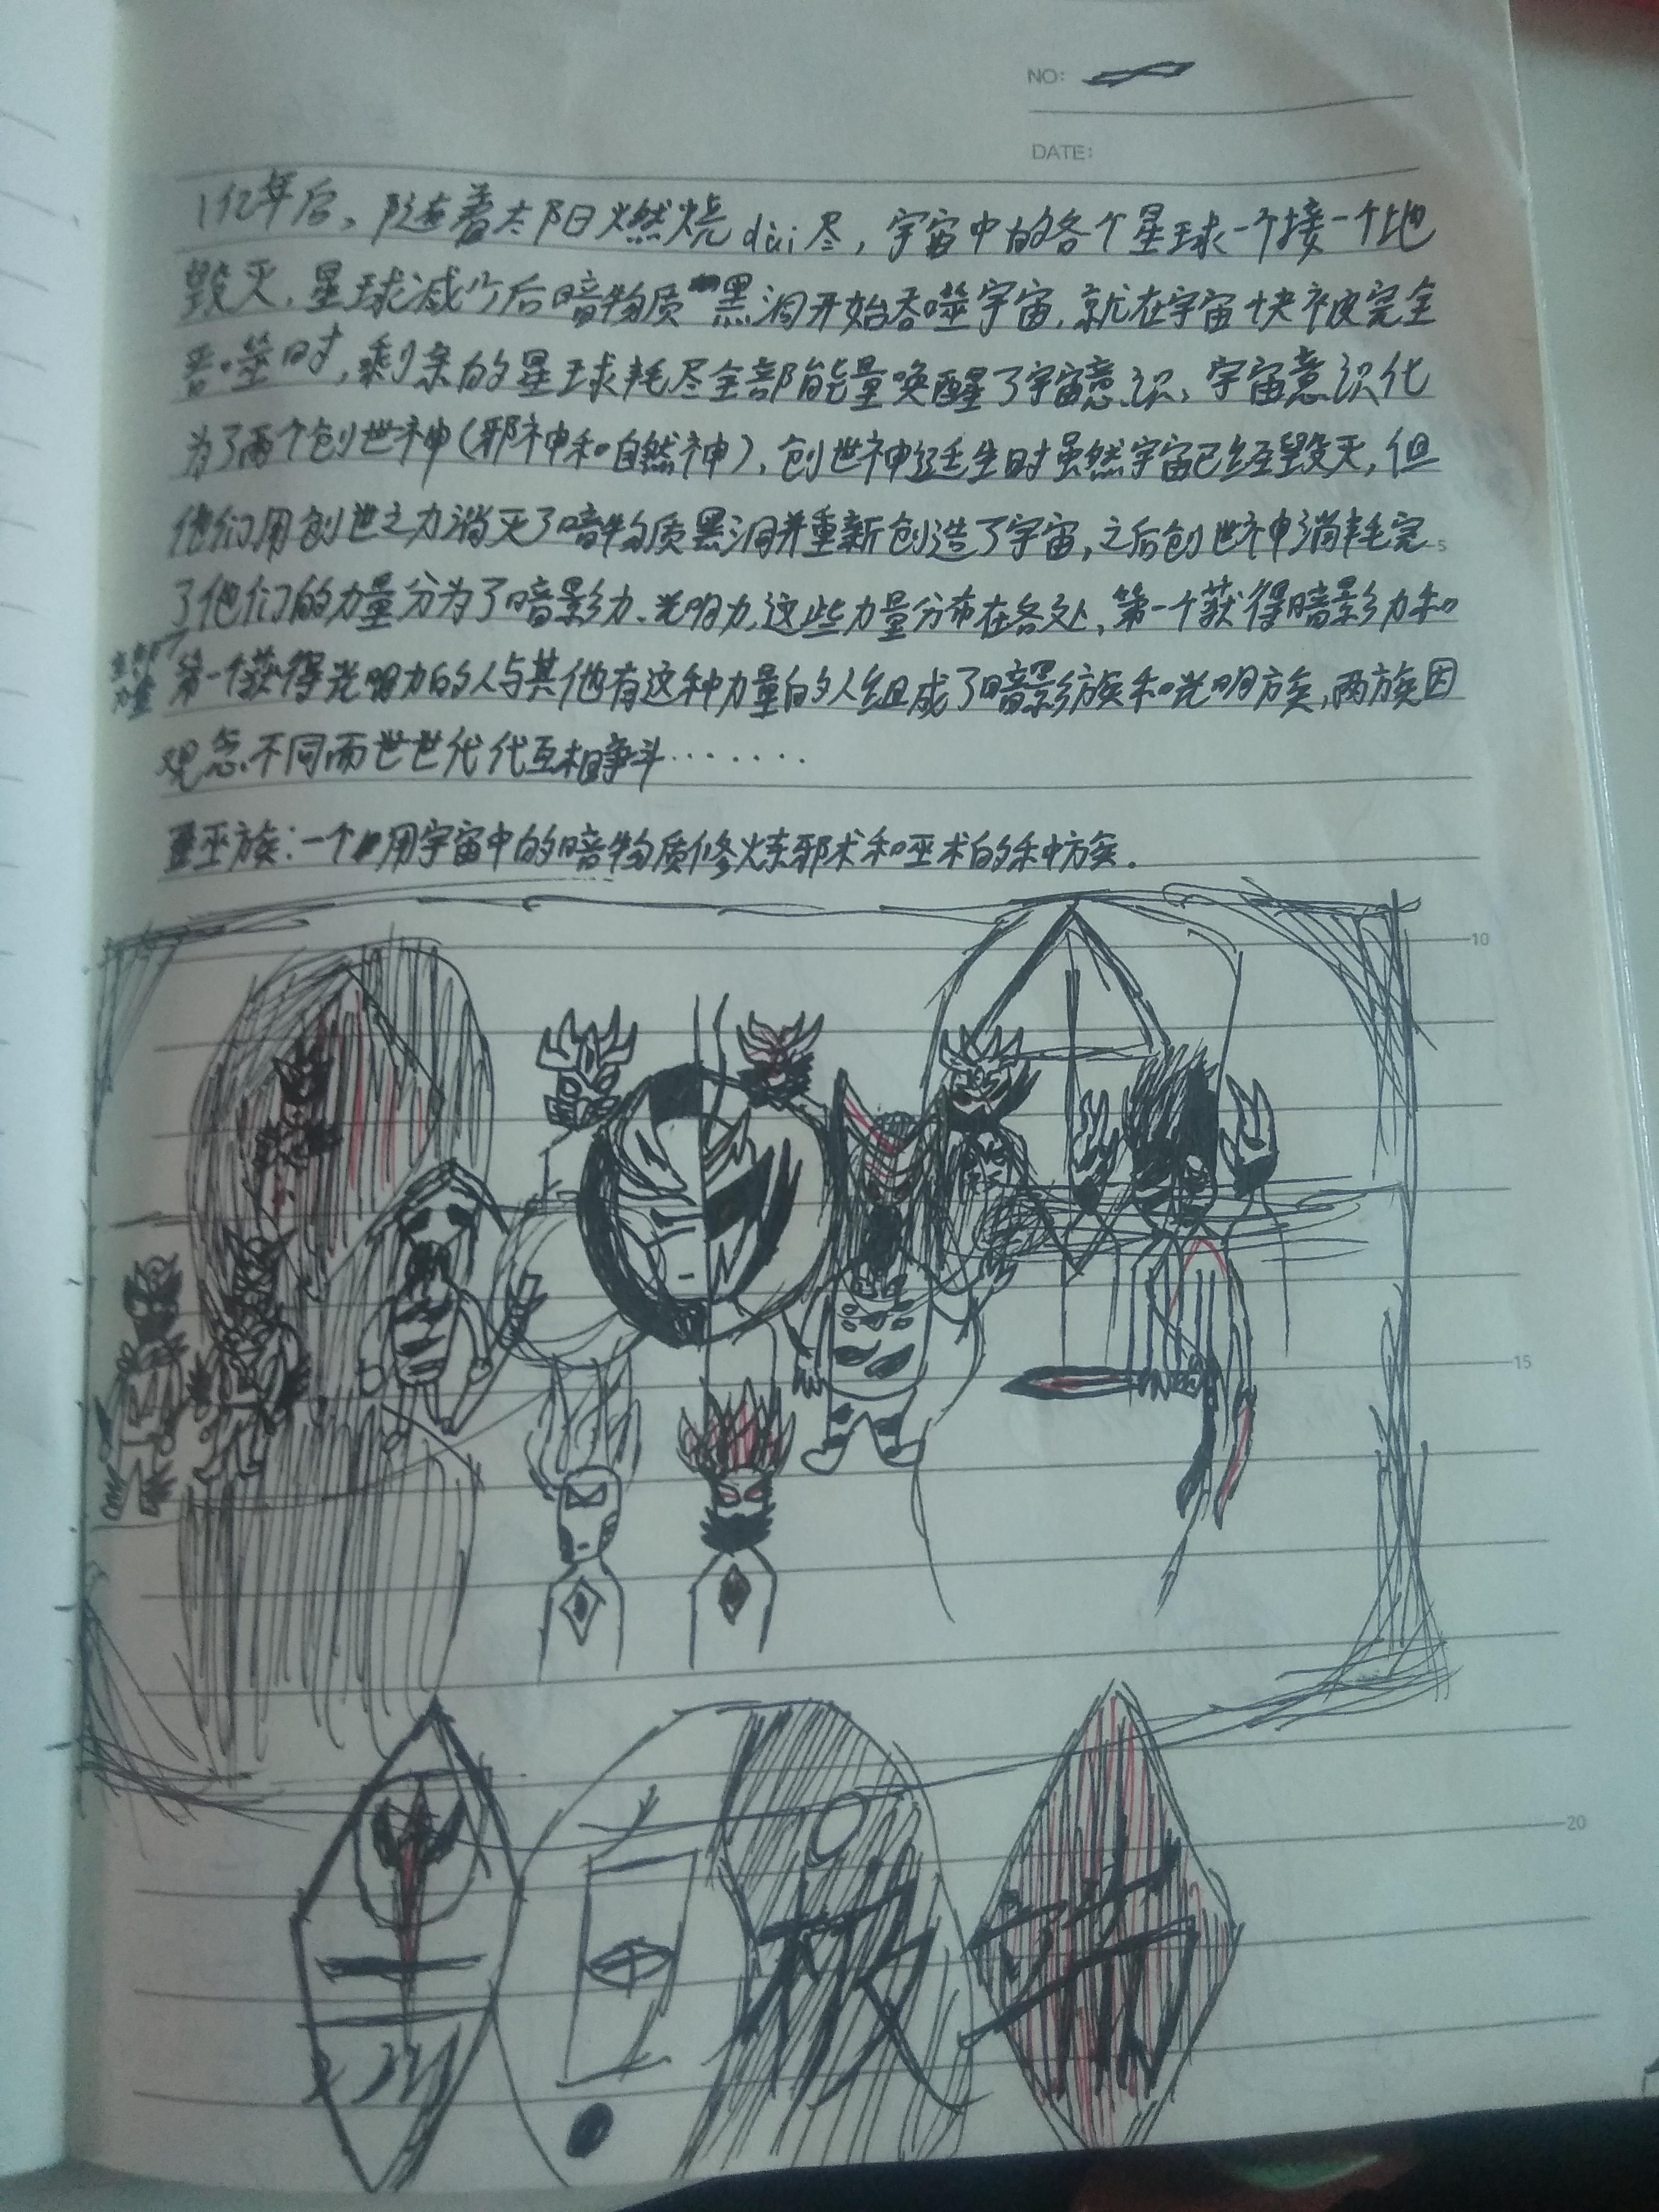 NO:
DATE:
1亿年后、随着太阳燃烧dài尽，宇宙中的各个星球一个接一个地
毁灭，星球减少后暗物质黑洞开始吞噬宇宙，就在宇宙快被完全
吞噬时，剩余的星球耗尽全部能量唤醒了宇宙意识，宇宙意识化
为了两个创世神（邪神和自然神），创世神诞生时虽然宇宙已经毁灭，但
他们用创世之力消灭了暗物质黑洞并重新创造了宇宙，之后创世神消耗完
了他们的力量分为了暗影力、光明力，这些力量分布在各处，第一个获得暗影力和
力量
第一个获得光明力的人与其他有这种力量的人组成了暗影族和光明族，两族因
观念不同而世世代代互相争斗·······
巫族：一个用宇宙中的暗物质修炼邪术和巫术的种族。
5
10
15
20